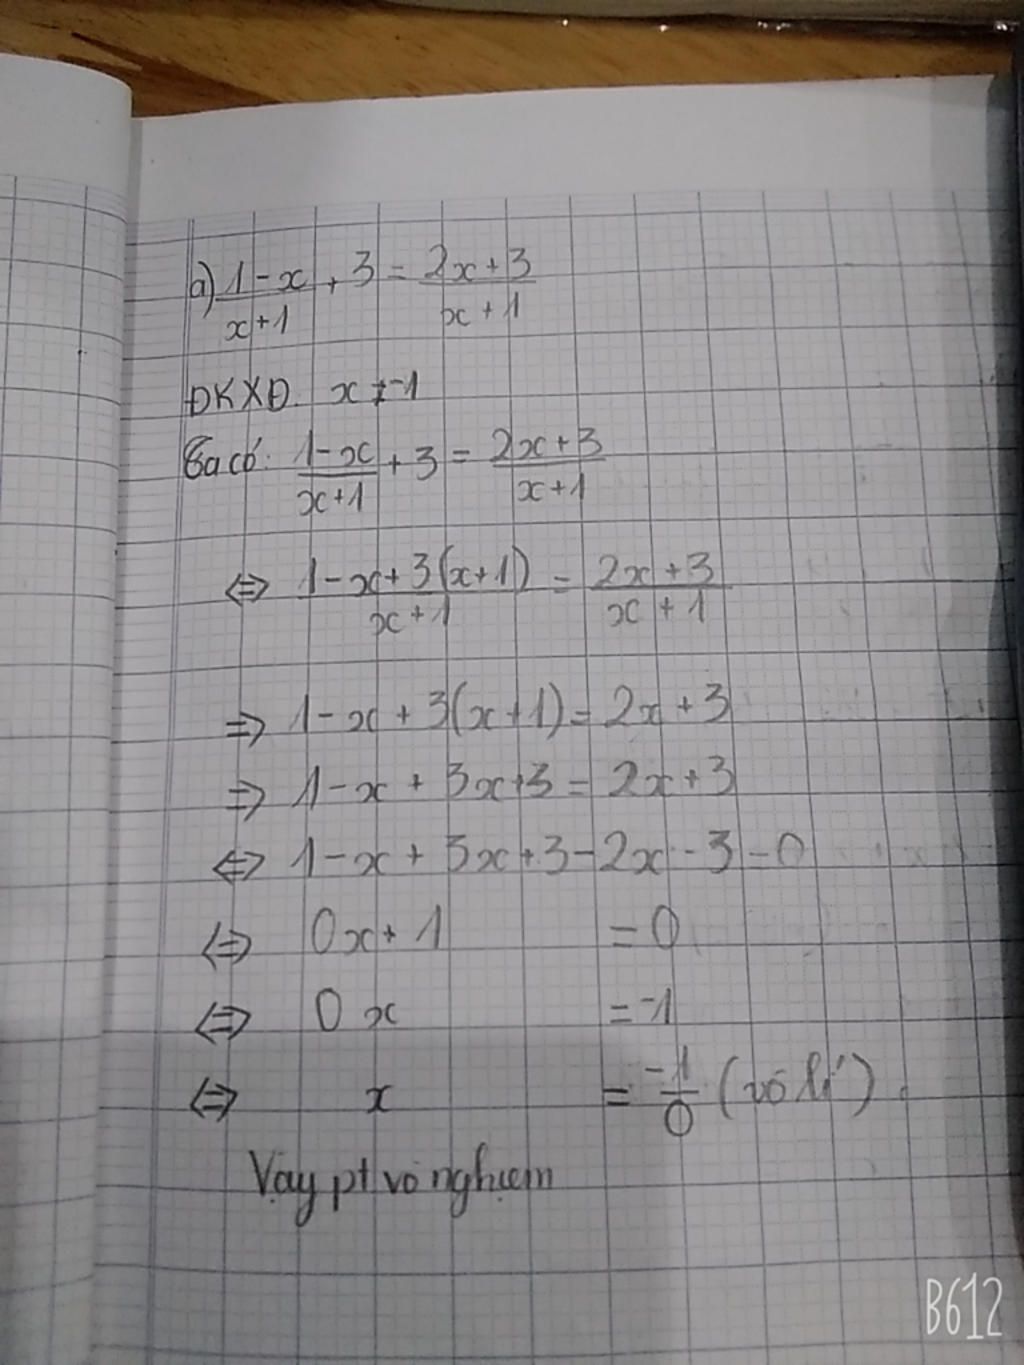 a) (1-x)/(x+1) + 3 = (2x+3)/(x+1)
ĐKXĐ. x ≠ -1
Ta có: (1-x)/(x+1) + 3 = (2x+3)/(x+1)
⇔ (1-x+3(x+1))/(x+1) = (2x+3)/(x+1)
⇒ 1-x+3(x+1) = 2x+3
⇒ 1-x+3x+3 = 2x+3
⇔ 1-x+3x+3-2x-3=0
⇔ 0x+1 = 0
⇔ 0x = -1
⇔ x = -1/0 (vô lí)
Vậy pt vô nghiệm
B612